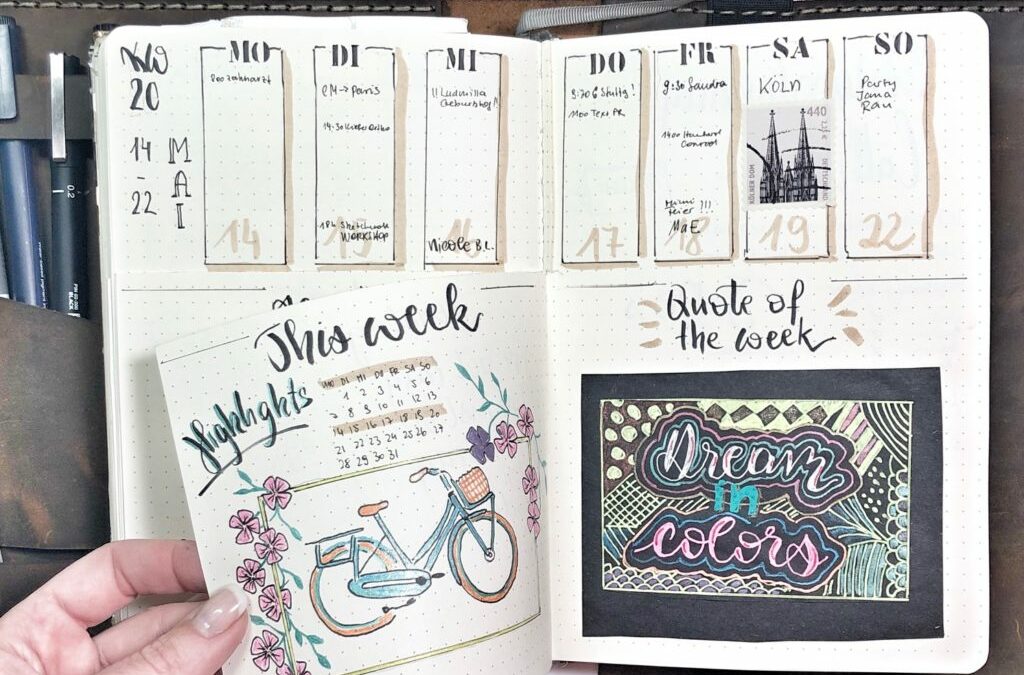 KW
20
14
-
22
MAI
MO
800 Zahnarzt
14
DI
→ Paris
14:30 Kiefer Ortho
WORKSHOP
15
MI
!! Ludmilla
Nicole B.L.
16
DO
1100 Text PR
17
FR
9:30 Sandra
1400
Conrad
feier !!!
MaE
18
SA
KÖLN
440
KÖLNER DOM
19
SO
Party
Jana
Rau
22
This week
Highlights
MO DI MI DO FR SA SO
1 2 3 4 5 6
7 8 9 10 11 12 13
14 15 16 17 18 19 20
21 22 23 24 25 26 27
28 29 30 31
Quote of
the week
Dream
in
colors
0.2
BLACK